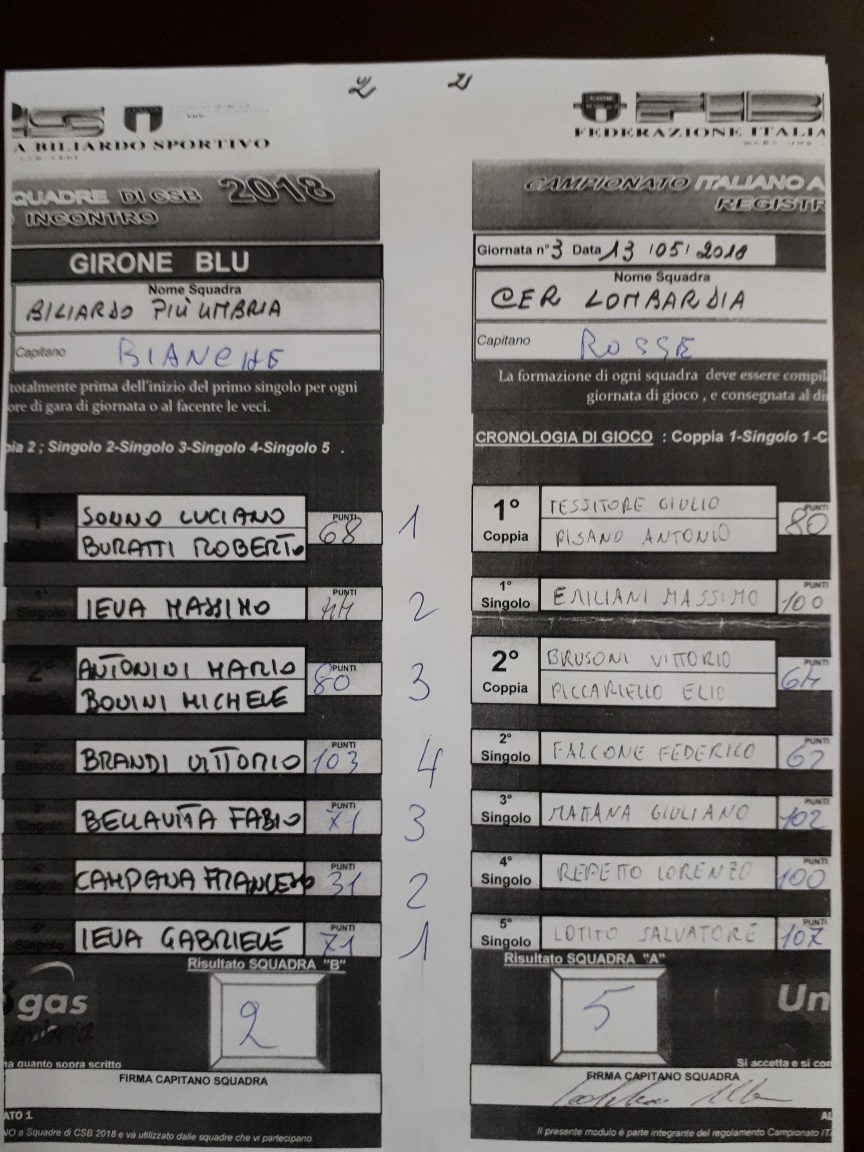 2 21
A BILIARDO SPORTIVO
QUADRE DI CSB 2018
INCONTRO
GIRONE BLU
Nome Squadra
BILIARDO PIÙ UMBRIA
Capitano BIANCHE
totalmente prima dell'inizio del primo singolo per ogni
ore di gara di giornata o al facente le veci.
pia 2 ; Singolo 2-Singolo 3-Singolo 4-Singolo 5 .
1°
SONNO LUCIANO
BURATTI ROBERTO
PUNTI
68
1
1°
Singolo
IEVA MASSIMO
PUNTI
44
2
2°
ANTONINI MARIO
BOVINI MICHELE
PUNTI
80
3
2°
Singolo
BRANDI VITTORIO
PUNTI
103
4
Singolo
BELLAVITA FABIO
PUNTI
71
3
Singolo
CAMPANA FRANCESCO
PUNTI
31
2
Singolo
IEVA GABRIELE
PUNTI
71
1
Risultato SQUADRA "B"
2
gas
ma quanto sopra scritto
FIRMA CAPITANO SQUADRA
ATO 1
NO a Squadre di CSB 2018 e và utilizzato dalle squadre che vi partecipano
FEDERAZIONE ITALIA
CAMPIONATO ITALIANO A
REGISTR
Giornata n° 3 Data 13 /05/ 2018
Nome Squadra
CER LOMBARDIA
Capitano ROSSE
La formazione di ogni squadra deve essere compil
giornata di gioco , e consegnata al di
CRONOLOGIA DI GIOCO : Coppia 1-Singolo 1 -C
1°
Coppia
TESSITORE GIULIO
PISANO ANTONIO
PUNTI
80
1°
Singolo
EMILIANI MASSIMO
PUNTI
100
2°
Coppia
BRUSONI VITTORIO
PICCARIELLO ELIO
PUNTI
64
2°
Singolo
FALCONE FEDERICO
PUNTI
62
3°
Singolo
MATTANA GIULIANO
PUNTI
102
4°
Singolo
REPETTO LORENZO
PUNTI
100
5°
Singolo
LOTITO SALVATORE
PUNTI
107
Risultato SQUADRA "A"
5
Un
Si accetta e si con
FIRMA CAPITANO SQUADRA
AL
Il presente modulo è parte integrante del regolamento Campionato ITA